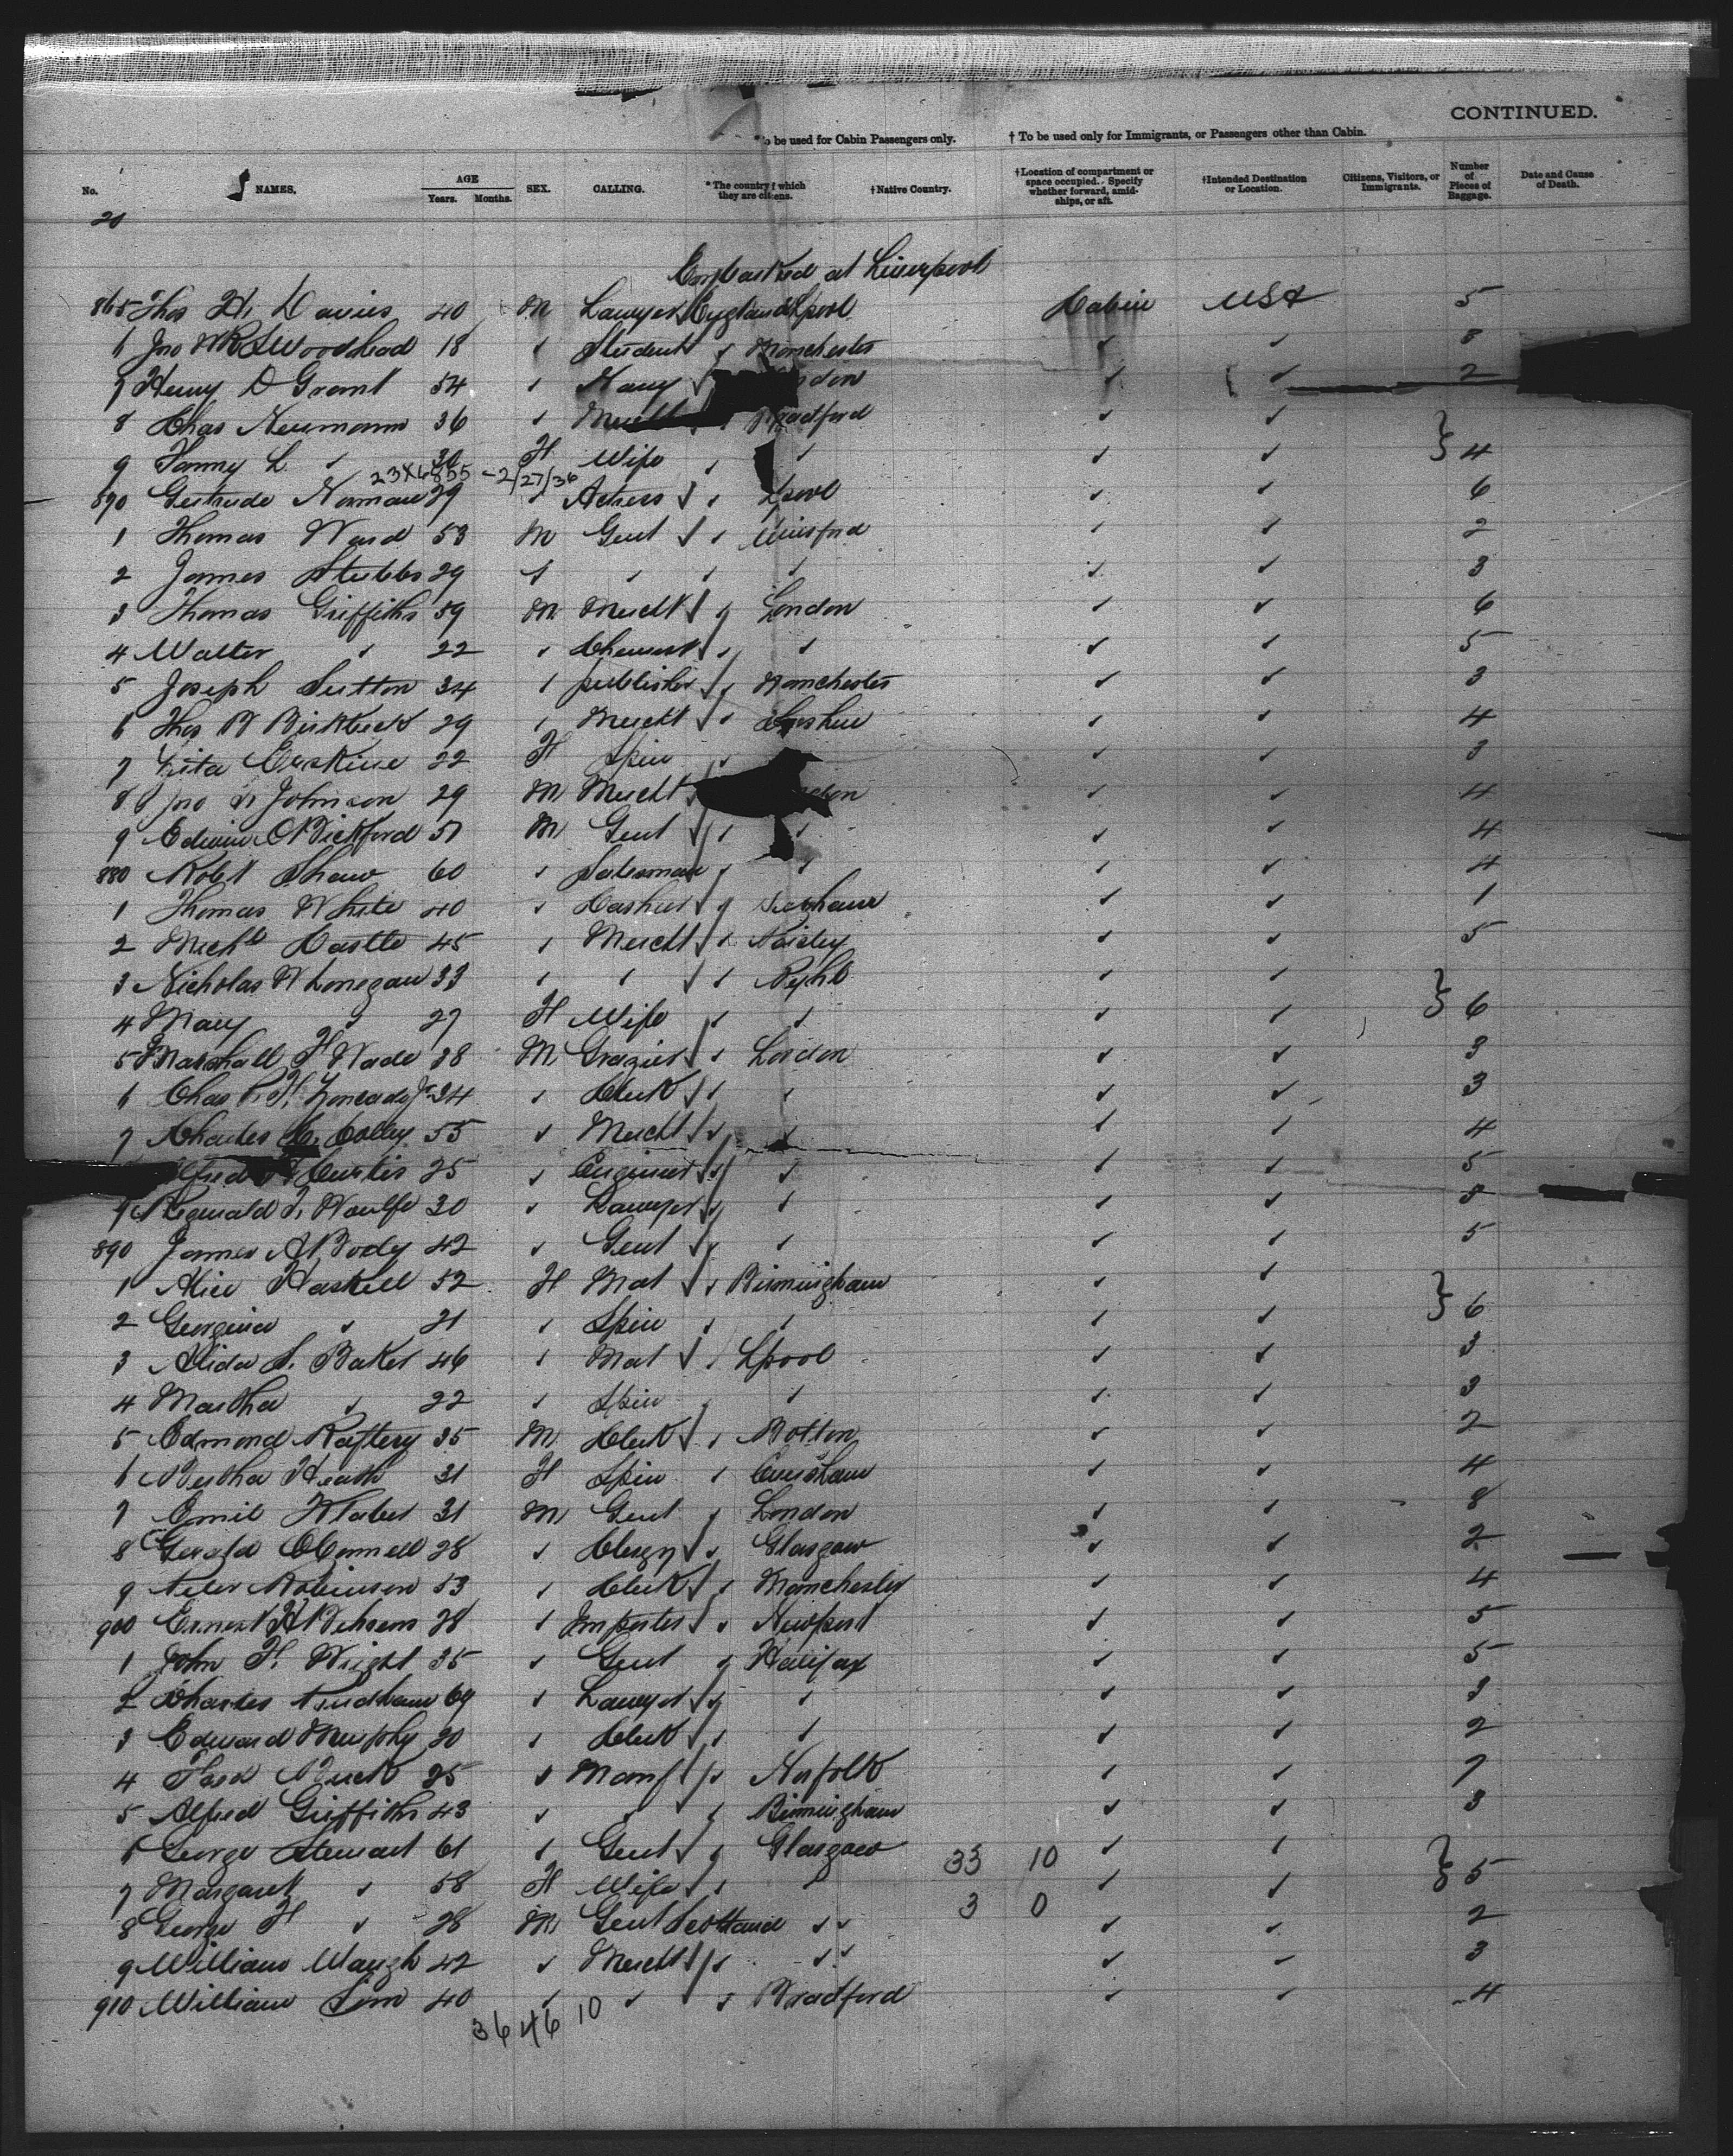 CONTINUED.
*To be used for Cabin Passengers only. † To be used only for Immigrants, or Passengers other than Cabin.
No. NAMES. AGE Years. Months. SEX. CALLING. *The country of which they are citizens. †Native Country. †Location of compartment or space occupied. Specify whether forward, amidships, or aft. †Intended Destination or Location. Citizens, Visitors, or Immigrants. Number of Pieces of Baggage. Date and Cause of Death.
20
Embarked at Liverpool
865 Thos H. Davies 40 M Lawyer England Lpool Cabin USA 5
6 Jno Woodhead 18 ✓ Student ✓ Manchester ✓ ✓ 8
7 Henry D Grant 54 ✓ Navy ✓ ✓ ✓ 2
8 Chas Neumann 36 ✓ Mercht ✓ Bradford ✓ ✓
9 Fanny L ✓ 30 F Wife ✓ ✓ ✓ ✓ } 4
23X6855 - 2/27/36
890 Gertrude Norman 29 ✓ Actress ✓ ✓ Lpool ✓ ✓ 6
1 Thomas Ward 53 M Gent ✓ ✓ Winsford ✓ ✓ 2
2 James Stubbs 29 ✓ ✓ ✓ ✓ ✓ ✓ 3
3 Thomas Griffiths 59 M Mercht ✓ ✓ London ✓ ✓ 6
4 Walter ✓ 22 ✓ Chemist ✓ ✓ ✓ ✓ ✓ 5
5 Joseph Sutton 34 ✓ publisher ✓ ✓ Manchester ✓ ✓ 3
6 Thos B Birkbeck 29 ✓ Mercht ✓ ✓ ✓ ✓ 4
7 Erskine 22 F Spin ✓ ✓ ✓ 3
8 Jno Johnson 29 M Mercht ✓ ✓ ✓ 4
9 Edwin Bickford 51 M Gent ✓ ✓ ✓ ✓ ✓ 4
880 Robt Shaw 60 ✓ Salesman ✓ ✓ ✓ ✓ 4
1 Thomas White 40 ✓ Cashier ✓ ✓ ✓ ✓ 1
2 Michl Castle 45 ✓ Mercht ✓ ✓ Paisley ✓ ✓ 5
3 Nicholas W Lonegan 33 ✓ ✓ ✓ ✓ Ryhl ✓ ✓
4 Mary ✓ 27 F Wife ✓ ✓ ✓ ✓ } 6
5 Marshall F Wade 38 M Grazier ✓ ✓ London ✓ ✓ 3
6 Chas Jr 34 ✓ Clerk ✓ ✓ ✓ ✓ ✓ 3
7 Charles Colley 55 ✓ Mercht ✓ ✓ ✓ ✓ ✓ 4
Curtis 25 ✓ Engineer ✓ ✓ ✓ ✓ ✓ 5
9 Reginald Woulfe 30 ✓ Lawyer ✓ ✓ ✓ ✓ ✓ 8
890 James A Body 42 ✓ Gent ✓ ✓ ✓ ✓ ✓ 5
1 Alice Haskell 52 F Mat ✓ ✓ Birmingham ✓ ✓
2 Georgina ✓ 21 ✓ Spin ✓ ✓ ✓ ✓ } 6
3 Alida S. Baker 46 ✓ Mat ✓ ✓ Lpool ✓ ✓ 3
4 Martha ✓ 22 ✓ Spin ✓ ✓ ✓ ✓ 3
5 Edmond Raftery 35 M Clerk ✓ ✓ Bolton ✓ ✓ 2
6 Bertha Heath 31 F Spin ✓ ✓ ✓ 4
7 Emil 31 M Gent ✓ London ✓ ✓ 8
8 Gerald OConnell 28 ✓ Clergy ✓ ✓ Glasgow ✓ ✓ 2
9 Peter Robinson 53 ✓ Clerk ✓ ✓ Manchester ✓ ✓ 4
900 Ernest H Behrens 28 ✓ Importer ✓ ✓ Newport ✓ ✓ 5
1 John F. Wright 35 ✓ Gent ✓ Halifax ✓ ✓ 5
2 Charles 69 ✓ Lawyer ✓ ✓ ✓ ✓ ✓ 3
3 Edward Murphy 20 ✓ Clerk ✓ ✓ ✓ ✓ ✓ 2
4 Buck 25 ✓ Manf ✓ ✓ Norfolk ✓ ✓ 7
5 Alfred Griffiths 43 ✓ ✓ ✓ Birmingham ✓ ✓ 3
6 George Stewart 61 ✓ Gent ✓ ✓ Glasgow 33 10 ✓ ✓
7 Margaret ✓ 58 F Wife ✓ ✓ ✓ ✓ ✓ } 5
8 George F ✓ 28 M Gent Scotland ✓ ✓ 3 0 ✓ ✓ 2
9 William Waugh 42 ✓ Mercht ✓ ✓ ✓ ✓ ✓ ✓ 3
910 William Sim 40 ✓ ✓ ✓ ✓ Bradford ✓ ✓ 4
36 46 10